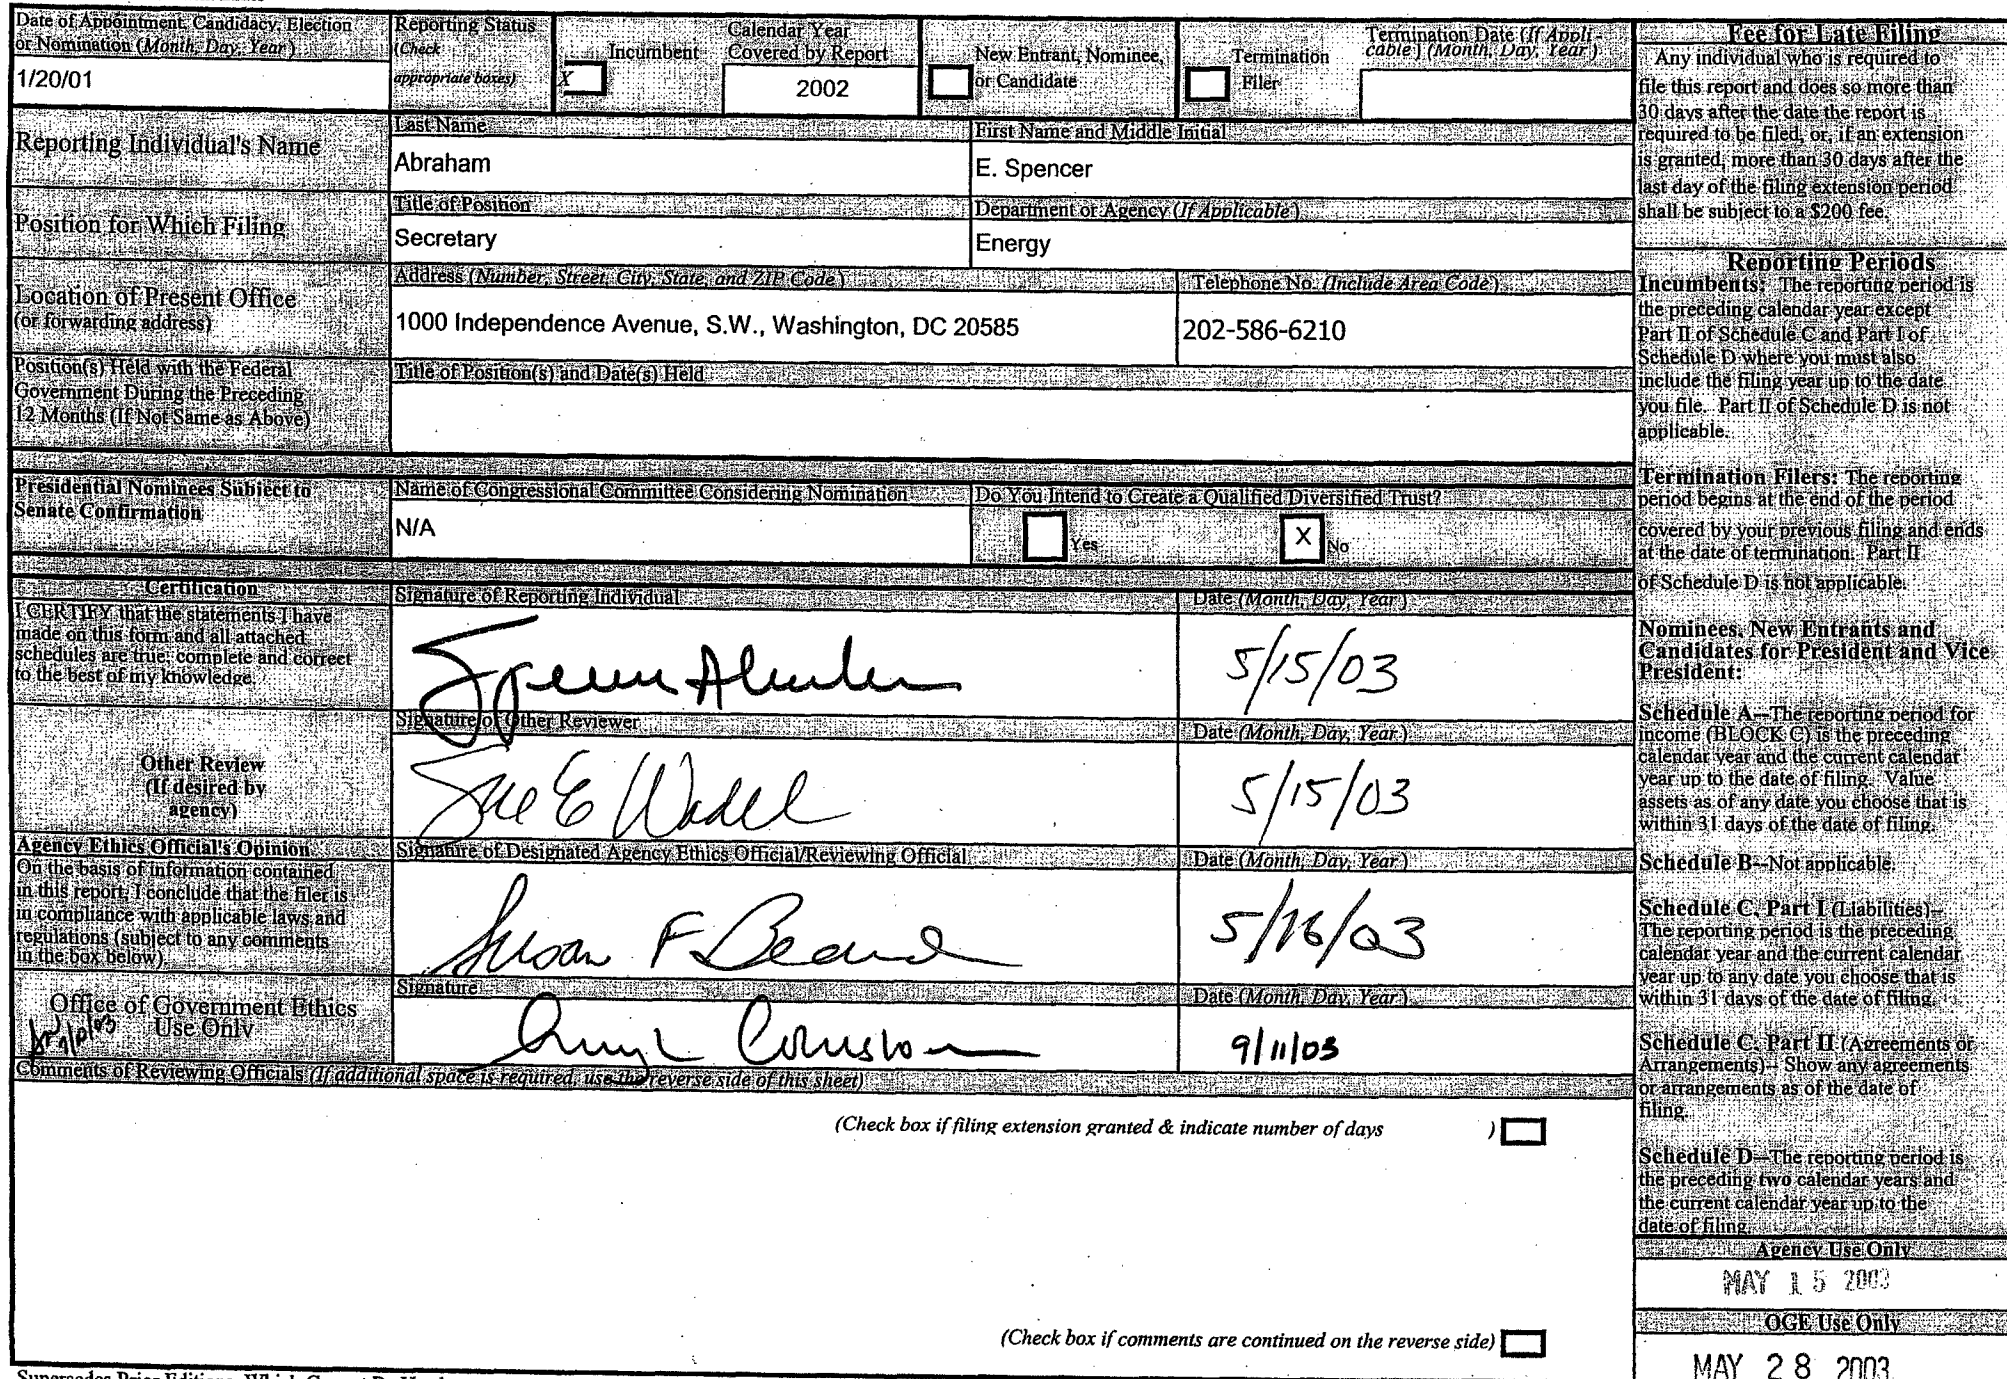 Date of Appointment, Candidacy, Election
or Nomination (Month, Day, Year)
1/20/01
Reporting Status
(Check
appropriate boxes)
X
Incumbent
Calendar Year
Covered by Report
2002
New Entrant, Nominee,
or Candidate
Termination
Filer
Termination Date (If Appli-
cable) (Month, Day, Year)
Reporting Individual's Name
Last Name
Abraham
First Name and Middle Initial
E. Spencer
Position for Which Filing
Title of Position
Secretary
Department or Agency (If Applicable)
Energy
Location of Present Office
(or forwarding address)
Address (Number, Street, City, State, and ZIP Code)
1000 Independence Avenue, S.W., Washington, DC 20585
Telephone No. (Include Area Code)
202-586-6210
Position(s) Held with the Federal
Government During the Preceding
12 Months (If Not Same as Above)
Title of Position(s) and Date(s) Held
Presidential Nominees Subject to
Senate Confirmation
Name of Congressional Committee Considering Nomination
N/A
Do You Intend to Create a Qualified Diversified Trust?
Yes
X
No
Certification
I CERTIFY that the statements I have
made on this form and all attached
schedules are true, complete and correct
to the best of my knowledge.
Signature of Reporting Individual
Spencer Abraham
Date (Month, Day, Year)
5/15/03
Other Review
(If desired by
agency)
Signature of Other Reviewer
Sue E Wadel
Date (Month, Day, Year)
5/15/03
Agency Ethics Official's Opinion
On the basis of information contained
in this report, I conclude that the filer is
in compliance with applicable laws and
regulations (subject to any comments
in the box below)
Signature of Designated Agency Ethics Official/Reviewing Official
Susan F Beard
Date (Month, Day, Year)
5/16/03
Office of Government Ethics
Use Only
Signature
Date (Month, Day, Year)
9/11/03
Comments of Reviewing Officials (If additional space is required, use the reverse side of this sheet)
(Check box if filing extension granted & indicate number of days )
(Check box if comments are continued on the reverse side)
Fee for Late Filing
Any individual who is required to
file this report and does so more than
30 days after the date the report is
required to be filed, or, if an extension
is granted, more than 30 days after the
last day of the filing extension period
shall be subject to a $200 fee.
Reporting Periods
Incumbents: The reporting period is
the preceding calendar year except
Part II of Schedule C and Part I of
Schedule D where you must also
include the filing year up to the date
you file. Part II of Schedule D is not
applicable.
Termination Filers: The reporting
period begins at the end of the period
covered by your previous filing and ends
at the date of termination. Part II
of Schedule D is not applicable.
Nominees, New Entrants and
Candidates for President and Vice
President:
Schedule A--The reporting period for
income (BLOCK C) is the preceding
calendar year and the current calendar
year up to the date of filing. Value
assets as of any date you choose that is
within 31 days of the date of filing.
Schedule B--Not applicable.
Schedule C, Part I (Liabilities)--
The reporting period is the preceding
calendar year and the current calendar
year up to any date you choose that is
within 31 days of the date of filing.
Schedule C, Part II (Agreements or
Arrangements)-- Show any agreements
or arrangements as of the date of
filing.
Schedule D--The reporting period is
the preceding two calendar years and
the current calendar year up to the
date of filing.
Agency Use Only
MAY 15 2003
OGE Use Only
MAY 28 2003